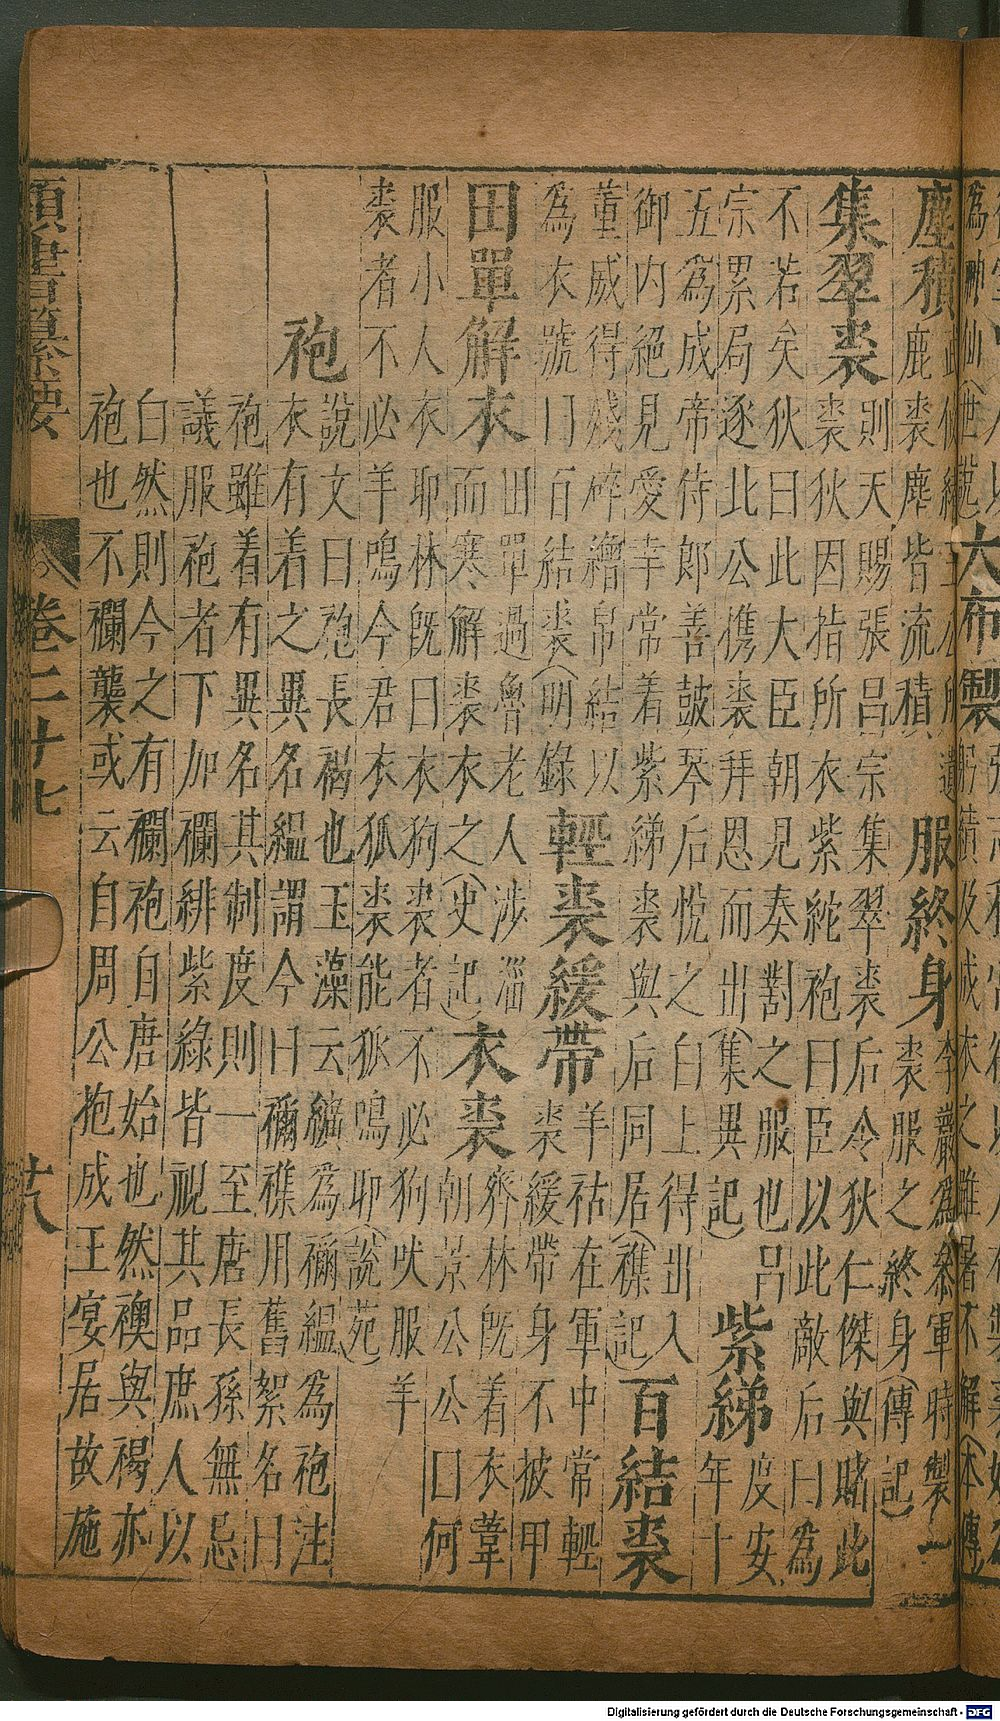 為神仙(世說 大布製 躬績及成衣之雖暑不解(本傳
塵積 鹿裘塵皆流積 服終身 李嚴為參軍時製一
裘服之終身(傳記)
集翠裘 則天賜張昌宗集翠裘后令狄仁傑與賭此
裘狄因指所衣紫絁袍曰臣以此敵后曰為
不若矣狄曰此大臣朝見奏對之服也呂
宗累局逐北公携裘拜恩而出(集異記) 紫綈 度安
年十
五為成帝侍郎善鼓琴后悅之白上得出入
御内絕見愛幸常着紫綈裘與后同居(襍記) 百結裘
董威得殘碎繒帛結以
為衣號曰百結裘(明錄 輕裘緩帶 羊祜在軍中常輕
裘緩帶身不披甲
田單解衣 田單過魯老人涉淄
而寒解裘衣之(史記) 衣裘 齊林既着衣韋
朝景公公曰何
服小人衣耶林既曰衣狗裘者不必狗吠服羊
裘者不必羊鳴今君衣狐裘能狐鳴耶(說苑)
袍 說文曰袍長襦也玉藻云纊為襺縕為袍注
衣有着之異名縕謂今曰襺襍用舊絮名曰
袍雖着有異名其制度則一至唐長孫無忌
議服袍者下加襴緋紫綠皆視其品庶人以
白然則今之有襴袍自唐始也然襖與褐亦
袍也不襴襲或云自周公抱成王宴居故施
類書纂要 卷二十七 廿八
Digitalisierung gefördert durch die Deutsche Forschungsgemeinschaft - DFG